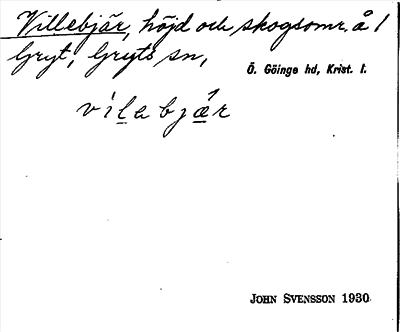 Villebjär, höjd och skogsomr. å 1
Gryt, Gryts sn,
Ö. Göinge hd, Krist. l.
vìlebjǽr
JOHN SVENSSON 1930.